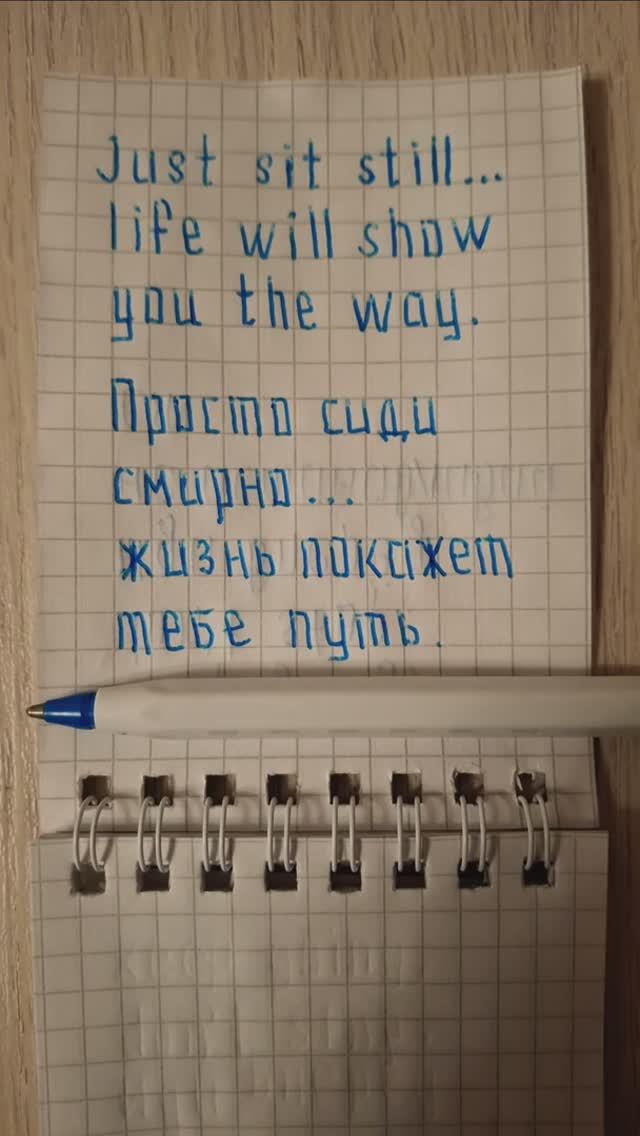 Just sit still...
life will show
you the way.
Просто сиди
смирно...
жизнь покажет
тебе путь.